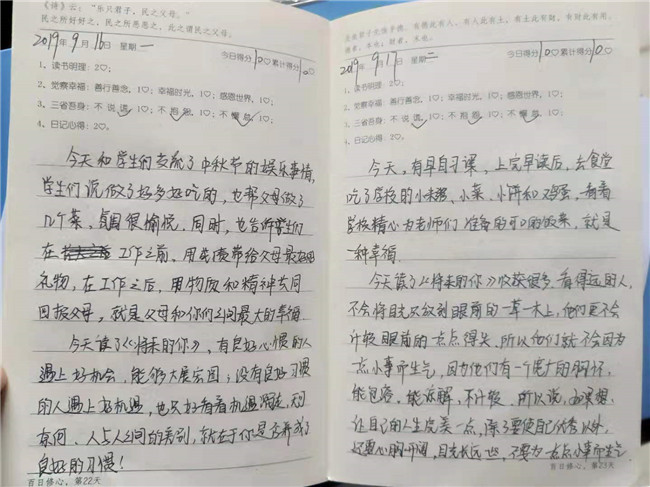 《诗》云："乐只君子，民之父母。"
民之所好好之，民之所恶恶之，此之谓民之父母。
2019年9月16日 星期一
今日得分10♡累计得分10♡
1、读书明理：2♡；
2、觉察幸福：善行善念，1♡；幸福时光，1♡；感恩世界，1♡；
3、三省吾身：不说谎，1♡；不抱怨，1♡；不懒惰，1♡；
4、日记心得：2♡。
今天和学生们交流了中秋节的娱乐事情，
学生们说做了好多好吃的，也帮父母做了
几个菜，氛围很愉悦，同时，也告诉学生们
在工作之前，用成绩带给父母最好的
礼物，在工作之后，用物质和精神共同
回报父母，就是父母和你们之间最大的幸福
今天读了《将来的你》，有良好心惯的人
遇上好机会，能够大展宏图；没有良好习惯
的人遇上好机遇，也只好看着机遇溜走，无可
奈何，人与人之间的差别，就在于你是否养成了
良好的习惯！
百日修心，第22天
是故君子先慎乎德。有德此有人，有人此有土，有土此有财，有财此有用。
德者，本也；财者，末也。
2019年9月17日 星期二
今日得分10♡累计得分10♡
1、读书明理：2♡；
2、觉察幸福：善行善念，1♡；幸福时光，1♡；感恩世界，1♡；
3、三省吾身：不说谎，1♡；不抱怨，1♡；不懒惰，1♡；
4、日记心得：2♡。
今天，有早自习课，上完早读后，去食堂
吃了学校的小米粥、小菜、小饼和鸡蛋，看着
学校精心为老师们准备的可口的饭菜，就是
一种幸福。
今天读了《将来的你》收获很多，看得远的人，
不会将目光放到眼前的一草一木上，他们更不会
计较眼前的一点点得失，所以他们就不会因为
一点小事而生气，因为他们有一个宽广的胸怀，
能包容，能谅解，不计较，所以说，如果想
让自己的人生完美一点，除了要使自己优秀以外，
还要心胸开阔，目光长远一些，不要为一点点小事而生气
百日修心，第23天